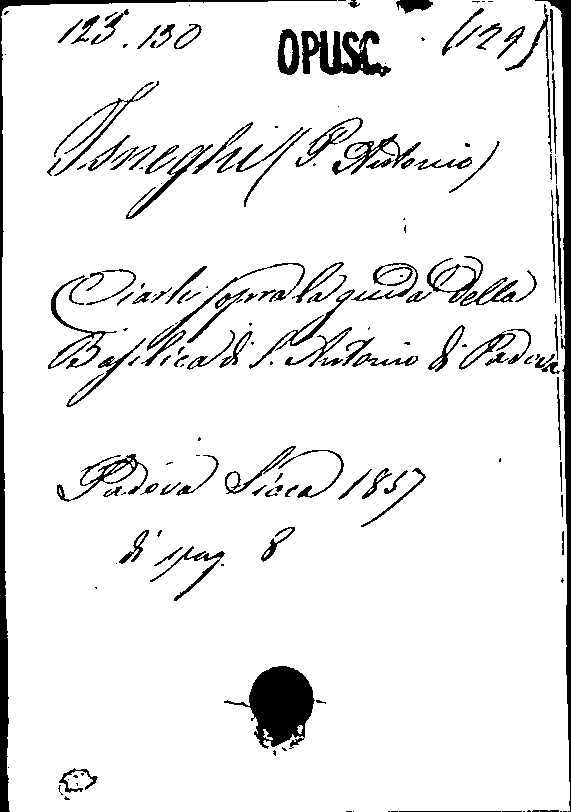 123.130 OPUSC. (129)
Isneghi (P. Antonio)
Ciarle sopra la guida della
Basilica di S. Antonio di Padova
Padova Sicca 1857
di pag. 8